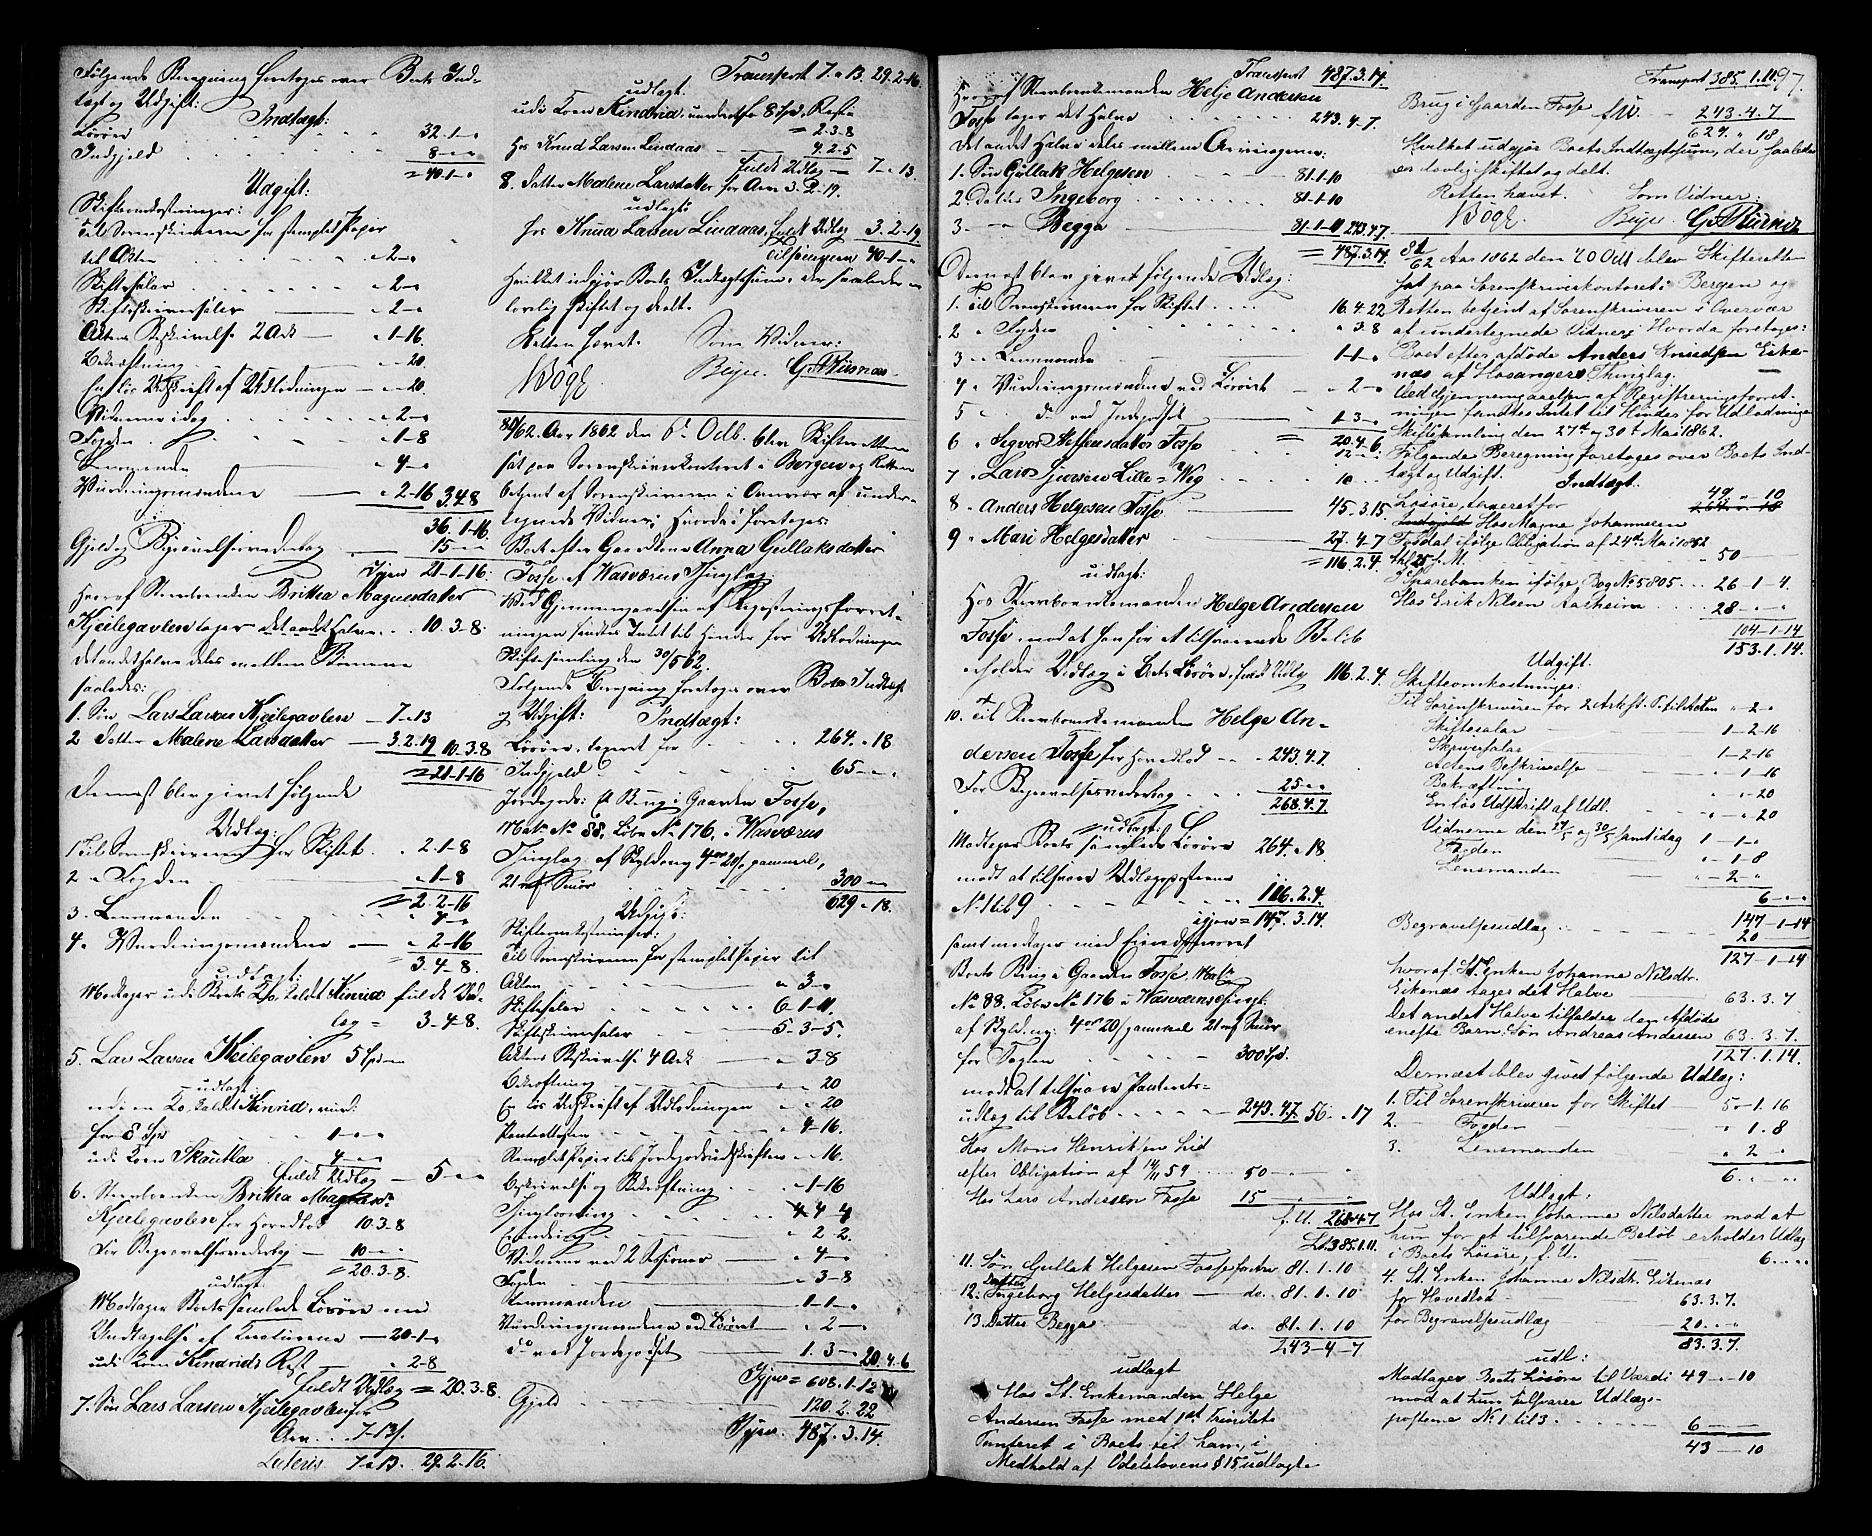 Følgende Beregning foretoges over Boets Ind-
tægt og Udgift:
Indtægt:
Løsøre 32-1-"
Indgjeld 8-"-"
= 40-1-"
Udgift:
Skifteomkostninger:
Til Sorenskriveren for stemplet Papir
til Akten " 2-"
Skiftesalær " 2-"
Skifteskriversalær " 2-"
Aktens Beskrivelse 2 Ark " 1-16.
Bekræftning " " 20.
En løs Udskrift af Udlodningen " " 20
Vidnerne idag " 2-"
Fogden " 1-8
Lensmanden " 4-"
Vurderingsmændene " 2-16 3.4.8
36.1-16.
Gjeld og Begravelsesvederlag 15-"-"
Igjen 21-1-16.
Heraf Stervbenken Britha Magnesdatter
Kjeilegavlen tager det andet Halve 10.3-8
det andet Halve deles mellem Børnene
saaledes:
1. Søn Lars Larsen Kjeilegavlen 7-"-13
2 Datter Malene Larsdatter 3.2.19 10.3.8
= 21-1-16
Dernæst blev givet følgende
Udlæg:
1 Til Sorenskriveren for Skiftet " 2.1-8
2 " Fogden " 1-8
= 2.2-16
3. Lensmanden " 4-"
4 " Vurderingsmændene " 2-16
3.4-8.
udlagt:
Modtager udi Boets Ko, kaldt Kinrid fuldt Ud-
læg = 3-4-8.
5. Lars Larsen Kjeilegavlen 5 Spd
udlagt:
udi en Ko, kaldt Kinrid, vurd:
for 8 Spd 1-"-"
udi Koen Skautla 4-"-"
fuldt Udlæg 5 " "
6. Stervbenken Britha Magnesd.
Kjeilegavlen for Hovedlod 10.3-8
For Begravelsesvederlag 10-"-"
= 20.3-8.
udlagt:
Modtager Boets samlede Løsøre med
Undtagelse af Creaturene 20-1-"
udi Koen Kindrids Rest " 2-8
fuldt Udlæg = 20.3-8.
7. Søn Lars Larsen Kjeilegavlen for
Arv 7-"-13/.
Lateris 7-"-13. 29.2-16.
Transport 7."-13. 29-2-16.
udlagt:
udi Koen Kindrid, vurdert for 8 Spd, Rest
= 2-3-8
Hos Knud Larsen Lindaas 4.2-5
fuldt Udlæg 7-"-13.
8. Datter Malene Larsdatter for Arv 3.2-19.
udlagt:
hos Knud Larsen Lindaas, fuldt Udlæg 3.2-19
tilsammen 40-1-"
hvilket udgjør Boets Indtægtssum, der saaledes er
lovlig skiftet og deelt.
Retten hævet. Som Vidner:
Bøgh Beyer.
81/62. Aar 1862 den 6t Octb. blev Skifteretten
sat paa Sorenskriverkontoret i Bergen og Retten
betjent af Sorenskriveren i Overvær af under-
tegnede Vidner; hvorda foretoges:
Boet efter Gaardkone Anna Gullaksdatter
Fosse af Tinglag.
Ved Gjennemgaaelsen af Registreringsforret-
ningen fandtes Intet til Hinder for Udlodningen
Skiftesamling den 30/5 62.
Følgende Beregning foretoges over Boets Indtægt
og Udgift: Indtægt:
Løsøre, taxeret for 264 " 18
Indgjeld 65-"-"
Jordegods: Et Brug i Gaarden Fosse,
Matr. No 88, Løbe No 176,
Tinglag af Skyld ny 4 ort 20/, gammel,
21 mrk Smør 300-"-"
629 " 18.
Udgift:
Skifteomkostninger:
Til Sorenskriveren for stemplet Papir til
Akten " 3-"
Skiftesalær 6-1-11.
Skifteskriversalær 5-3-5.
Aktens Beskrivelse 4 Ark " 3-8
Bekræftning " " 20
En løs Udskrift af Udlodningen " " 20
Panteattesten " 4-16.
Stemplet Papir til Jordegodsudskriften " " 16.
Beskrivelse og Bekræftning " 1-16
Tinglæsning 4-4
2-2.
Vidnerne ved 2 Sessioner " 4-"
Fogden " 3-8
Lensmanden 1-1-"
Vurderingsmændene ved Løsøret " 2-"
do ved Jordegodset 1.3-" 20.4-6
Igjen = 608.1-12
Gjeld 120.2.22
Igjen 487.3.14.
Transport 487.3.14.
Heraf Stervboenkemanden Helje Andersen
Fosse tager det Halve 243.4-7.
det andet Halve deles mellem Arvingerne:
1. Søn Gullak Helgesen 81.1-10
2 Datter Ingeborg 81-1-10
3 " Begga 81-1-10 243.4.7.
= 487.3.14.
Dernæst blev givet følgende Udlæg:
1. Til Sorenskriveren for Skiftet 16.4.22
2 " Fogden " 3-8
3 " Lensmanden 1-1-"
4 " Vurderingsmændene ved Løsøret " 2-"
5 " do ved Jordegodset 1 3-"
= 20.4-6
6 " Fosse 12-"-"
7 " Lars Sjursen Lille-Veg 10 " "
8 " Anders Helgesen Fosse 45-3.15.
9 " Mari Helgesdatter 27.4.7
= 116.2.4.
udlagt:
Hos Stervboenkemanden Helge Andersen
Fosse, mod at han for at tilsvarende Beløb
erholder Udlæg i Boets Løsøre, fuldt Udlæg 116.2.4.
10. Til Stervboenkemanden Helge An-
dersen Fosse for Hovedlod 243.4.7.
For Begravelsesvederlag 25-"-"
268.4.7.
udlagt:
Modtager Boets samlede Løsøre 264 " 18.
modt at tilsvare Udlægsposterne
No 1 til 9 116.2.4.
igjen = 147.3.14.
samt modtager med Eiendomsret
Boets Brug i Gaarden Fosse, Matr.
No 88. Løbe No 176 i
af Skyld ny: 4 ort 20/ gammel 21 mrk Smør
for Taxten 300 Spd.
mod at tilsvare Pante-
udlæg til Beløb 243.4.7. 56 " 17
Hos Mons Henriksen Lid
efter Obligation af 14/11 59 50 " "
Hos Lars Andersen Fosse 15 " "
f. U. 268.4.7
Lt. 385.1.11.
11. Søn Gullak Helgesen Fosse for Arv 81.1.10
12. Datter Ingeborg Helgesdatter do. 81.1.10
13. Datter Begga do. 81.1.10
243-4-7
udlagt
Hos St. Enkemanden Helge
Andersen Fosse med 1st Prioritets
Panteret i Boets til ham, i
Medhold af Odelslovens § 15, udlagte
Transport 385.1.11. 97.
Brug i Gaarden Fosse f. U. 243.4.7
629. " 18
Hvilket udgjør Boets Indtægtssum, der saaledes
er lovlig skiftet og delt.
Retten hævet. Som Vidner
Bøgh Beyer
82/62 Aar 1862 den 20 Octb blev Skifteretten
sat paa Sorenskriverkontoret i Bergen og
Retten betjent af Sorenskriveren i Overvær
af undertegnede Vidner: Hvorda foretoges:
Boet efter afdøde Anders Knudsen Eike-
næs af Hosangers Thinglag.
Ved Gjennemgaaelsen af Registreringsforret-
ningen fandtes Intet til Hinder for Udlodningen
Skiftesamling den 27de og 30te Mai 1862.
Følgende Beregning foretoges over Boets Ind-
tægt og Udgift. Indtægt.
Løsøre, taxeret for 49 " 10
Hos Magne Johannesen
Tosdal ifølge Obligation af 24de Mai 1852
thl. 25 f. M. 50 " "
I Sparebanken ifølge Bog No 5805 26-1-4.
Hos Erik Nilsen Aasheim 28-"-"
104-1-14
153.1.14.
Udgift.
Skifteomkostninger.
Til Sorenskriveren for 2 Ark st. P. til Akten " 2-"
Skiftesalær 1-2-16
Skriversalær 1-2-16
Actens Beskrivelse " 1-16
Bekræftning " " 20
En løs Udskrift af Udl. " " 20
Vidnerne den 27/5 og 30/5 samt idag 1-1-"
Fogden " 1-8
Lensmanden " 2-"
6 " "
147-1-14
Begravelsesudlæg 20 " "
127-1-14
hvoraf St. Enken Johanne Nilsdtr.
Eikenæs tager det Halve 63.3.7
Det andet Halve tilfalder den Afdødes
eneste Barn, Søn Andreas Anderssen 63.3.7.
127.1.14.
Dernæst blev givet følgende Udlæg:
1. Til Sorenskriveren for Skiftet 5-1.16
2. Fogden " 1.8
3. Lensmanden " 2-"
6 " "
Udlagt:
Hos St. Enken Johanne Nilsdatter mod at
hun for et tilsvarende Beløb erholder Udlæg
i Boets Løsøre, f. U. 6 " "
4. St. Enken Johanne Nilsdtr. Eikenæs
for Hovedlod 63.3.7.
for Begravelsesudlæg 20 " "
83.3.7.
udl:
Modtager Boets Løsøre til Værdi 49 " 10
mod at hun tilsvarer Udlægs-
posterne No 1 til 3. 6 " "
43 " 10